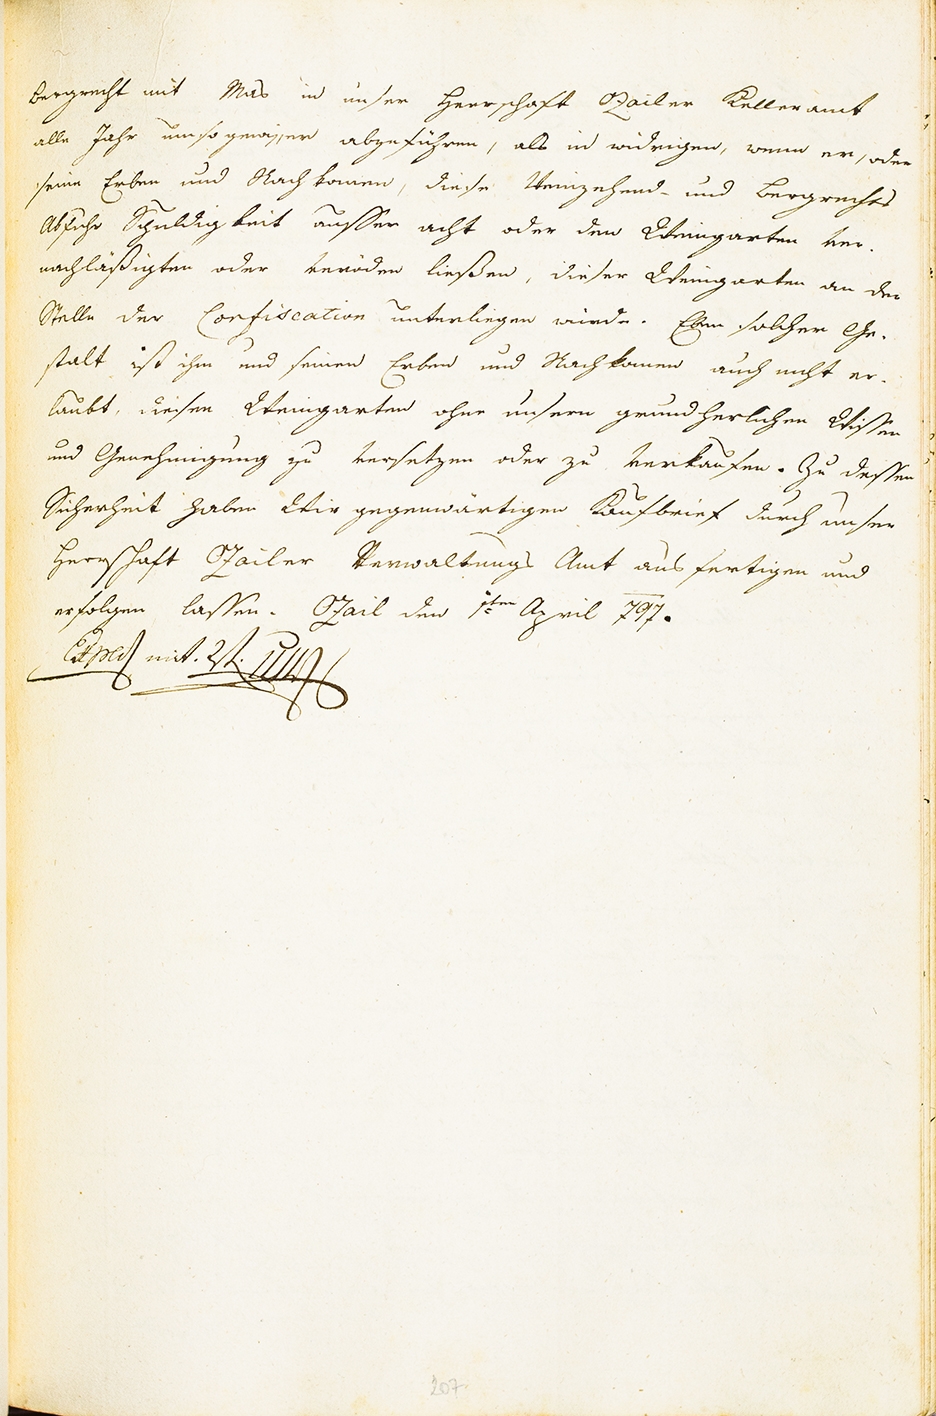 Bergrecht mit Mas in unser Herrschaft Zailer Kelleramt
alle Jahr umso gewisser abzuführen, als in widrigen, wenn er, oder
seine Erben und Nachkomen, diese Weinzehend- und Bergrechts
Abfuhr Schuldigkeit ausser acht oder den Weingarten ver-
nachläßigten oder veröden ließen, dieser Weingarten an der
Stelle der Confiscation unterliegen würde. Eben solcher Ge-
stalt ist ihm und seinen Erben und Nachkomen auch nicht er-
laubt, diesen Weingarten ohne unsern grundherlichen Wissen
und Genehmigung zu versetzen oder zu verkaufen. Zu dessen
Sicherheit haben Wir gegenwärtigen Kaufbrief durch unser
Herrschaft Zailer Verwaltungs Amt ausfertigen und
erfolgen lassen. Zail den 1ten April 797.
mit.
207